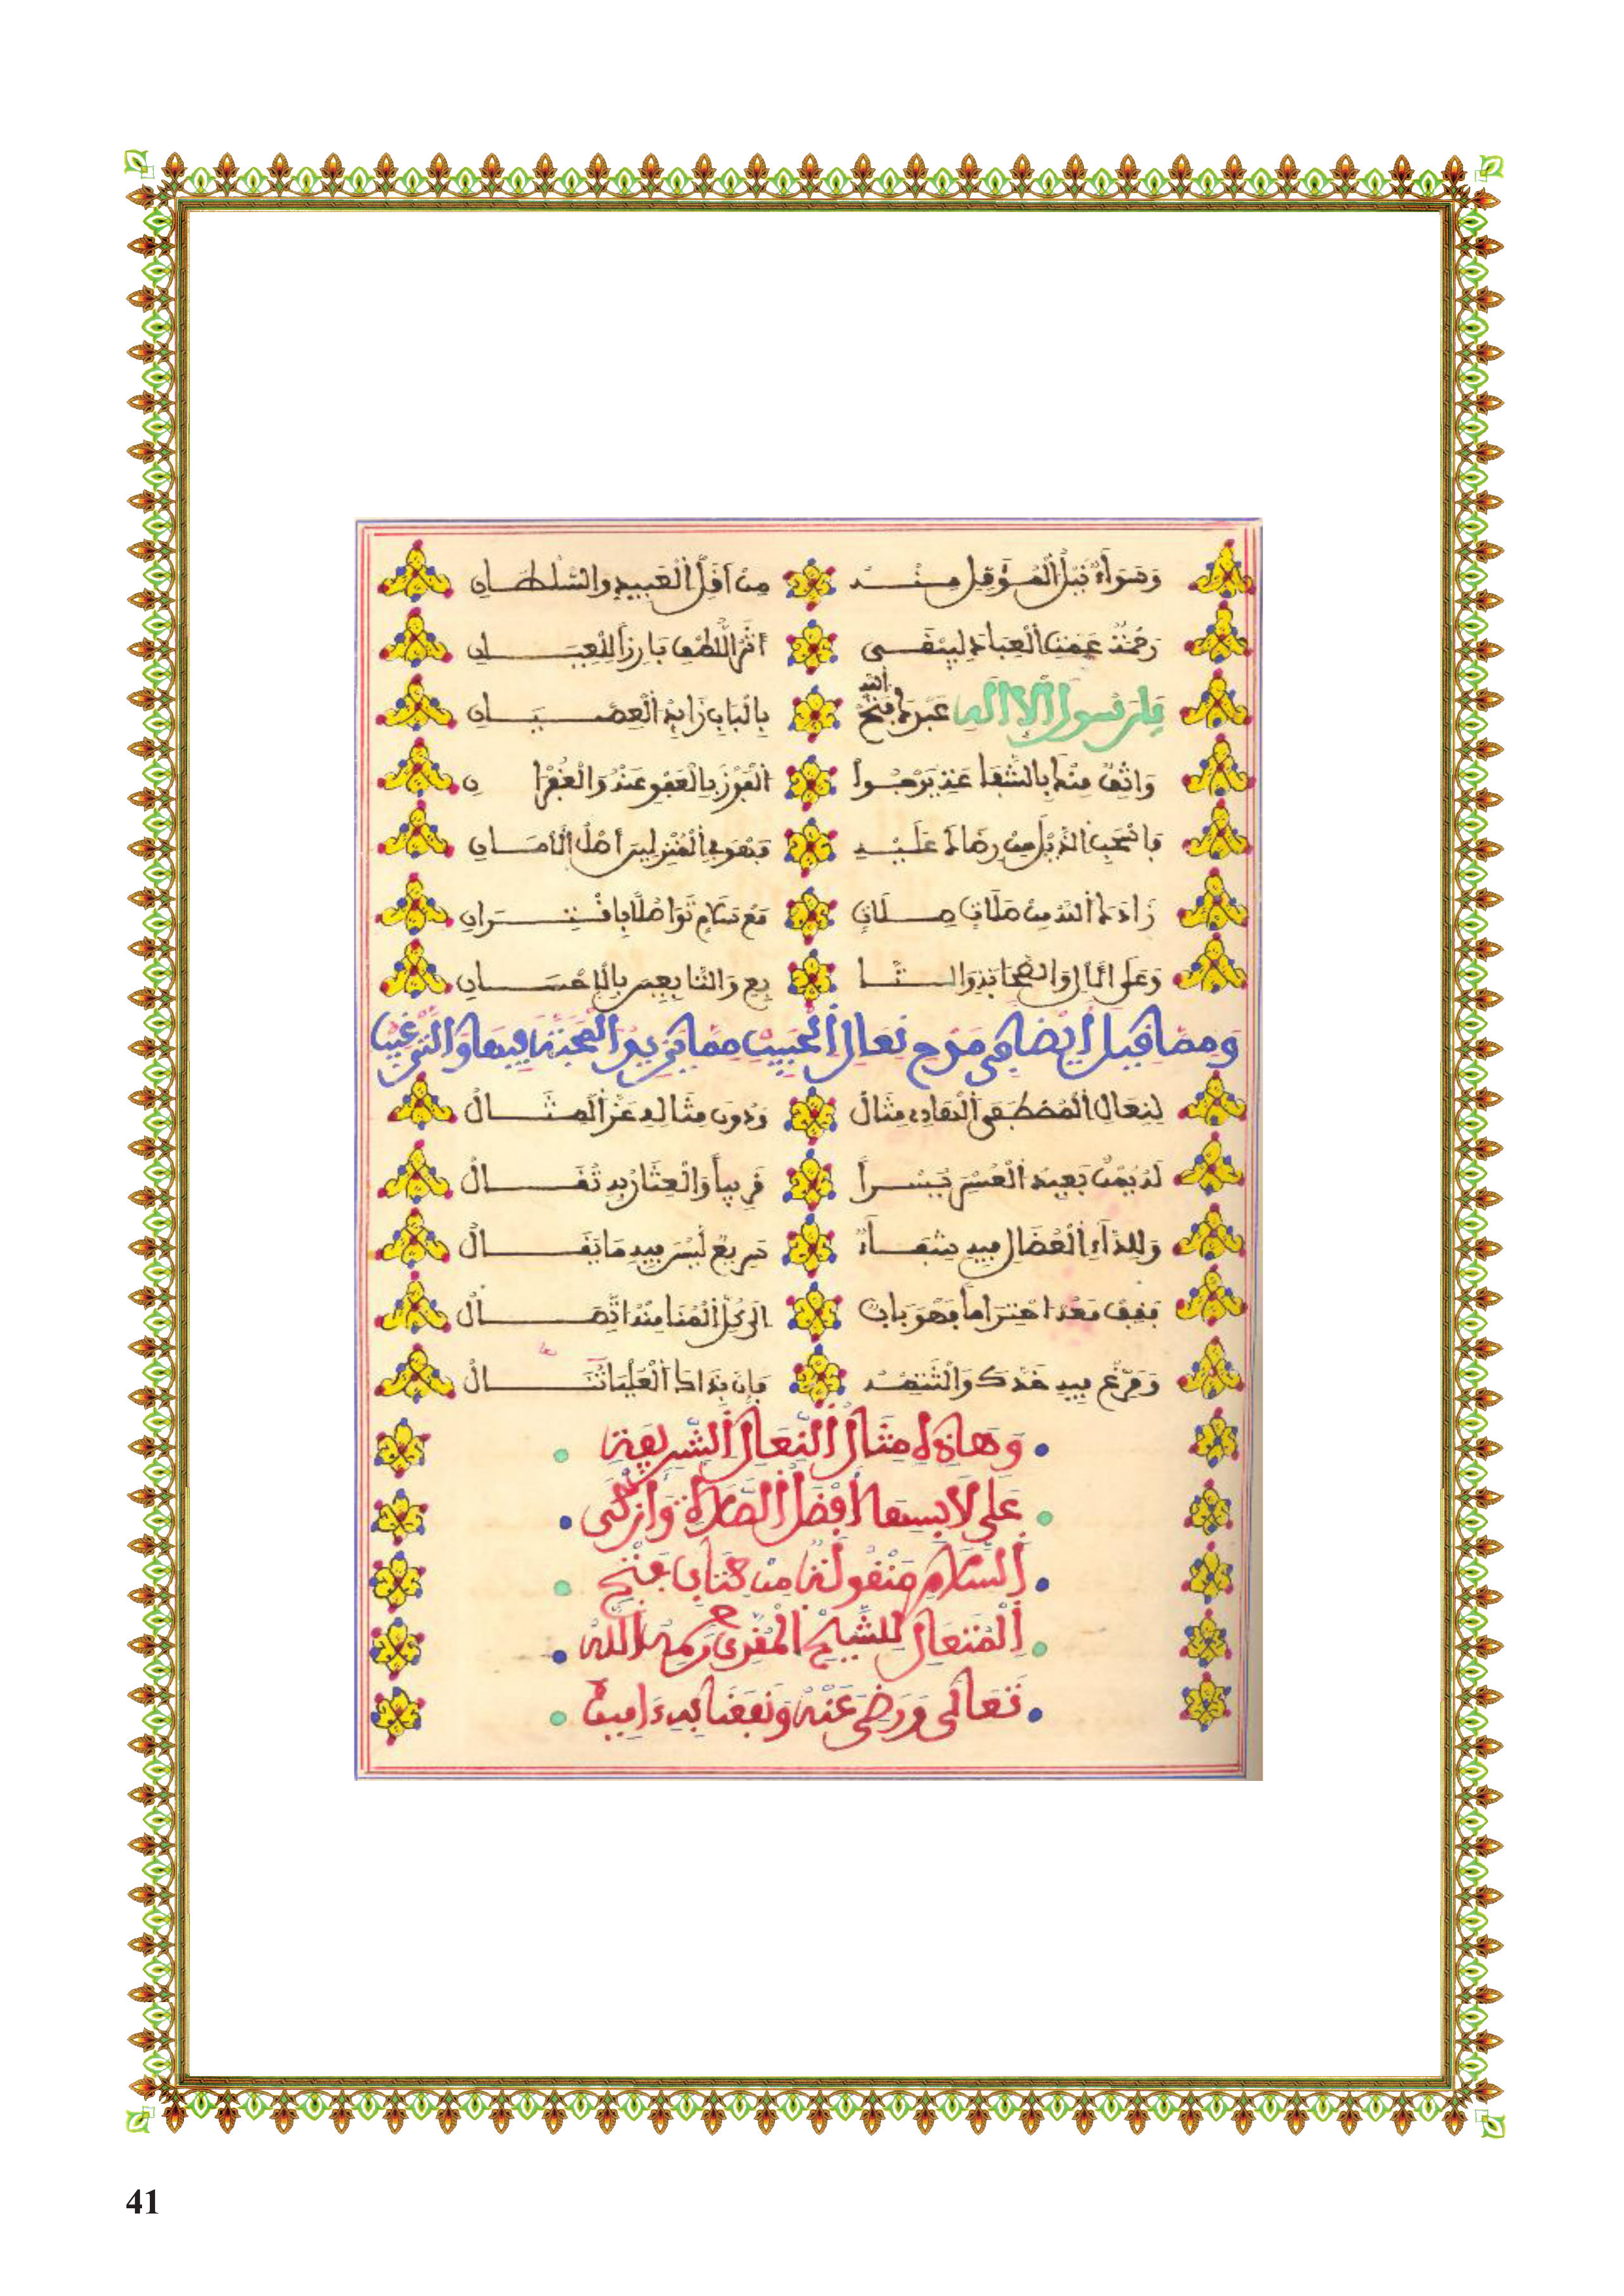 وَسَوَآءٌ نَيْلُ الْمُؤَمِّلِ مِنْهُ مِنْ أَقَلِّ الْعَبِيدِ وَالسُّلْطَانِ
رَحْمَةٌ عَمَّتِ الْعِبَادَ لِيَبْقَى أَثَرُ اللُّطْفِ بَارِزاً لِلْعِيَانِ
يَا رَسُولَ الْإِلَهِ عَبْدُكَ بِالْبَابِ زَائِدُ الْعِصْيَانِ
وَاثِقٌ مِنْكَ بِالشَّفَاعَةِ يَرْجُوا الْفَوْزَ بِالْعَفْوِ عَنْهُ وَالْغُفْرَانِ
فَاسْحَبِ الذَّيْلَ مِنْ رِضَاكَ عَلَيْهِ فَهْوَ فِي الْمُنْزَلِينَ أَهْلُ الْأَمَانِ
زَادَكَ اللهُ مِنْ صَلَاةٍ صِلَاتٍ مَعْ سَلَامٍ تَوَاصَلَا بِاقْتِرَانِ
وَعَلَى الْآلِ وَالصَّحَابَةِ وَالتَّا بِعِ وَالتَّابِعِينَ بِالْإِحْسَانِ
وَمِمَّا قِيلَ أَيْضاً فِي مَدْحِ نِعَالِ الْحَبِيبِ مِمَّا يَزِيدُ الْمَحَبَّةَ فِيهَا وَالتَّرْغِيبَ
لِنِعَالِ الْمُصْطَفَى الْهَادِي مِثَالٌ وَدُونَ مِثَالِهِ عَزَّ الْمِثَالُ
لَهُ يُمْنٌ يُعِيدُ الْعُسْرَ يُسْراً قَرِيباً وَالْعِثَارُ بِهِ تُقَالُ
وَلِلدَّاءِ الْعُضَالِ فِيهِ شِفَآءٌ سَرِيعٌ لَيْسَ فِيهِ مَا يُقَالُ
فَقِفْ مَعْهُ احْتِرَاماً فَهْوَ بَابٌ إِلَى كُلِّ الْمُنَا مِنْهُ اتِّصَالُ
وَمَرِّغْ فِيهِ خَدَّكَ وَالْتَثِمْهُ فَإِنَّ بِذَاكَ الْعُلْيَا تُنَالُ
وَهَاذِهِ مِثَالُ النِّعَالِ الشَّرِيفَةِ
عَلَى لَابِسِهَا أَفْضَلُ الصَّلَاةِ وَأَزْكَى
السَّلَامِ مَنْقُولَةً مِنْ كِتَابِ فَتْحِ
الْمُتَعَالِ لِلشَّيْخِ الْمَقَّرِي رَحِمَهُ اللهُ
تَعَالَى وَرَضِيَ عَنْهُ وَنَفَعَنَا بِهِ ءَامِينَ
41